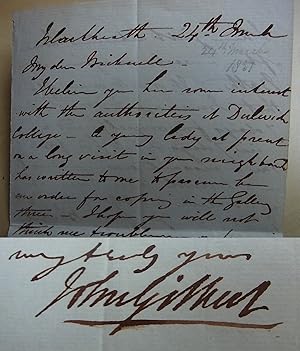 Blackheath - 24th March
24th March
1857
My dear Bicknell
I believe you have some interest
with the authorities at Dulwich
College - a young lady at present
on a long visit in your neighbourhood
has written to me to procure her
an order for copying in the Gallery
there - I hope you will not
think me troublesome
very truly yours
John Gilbert